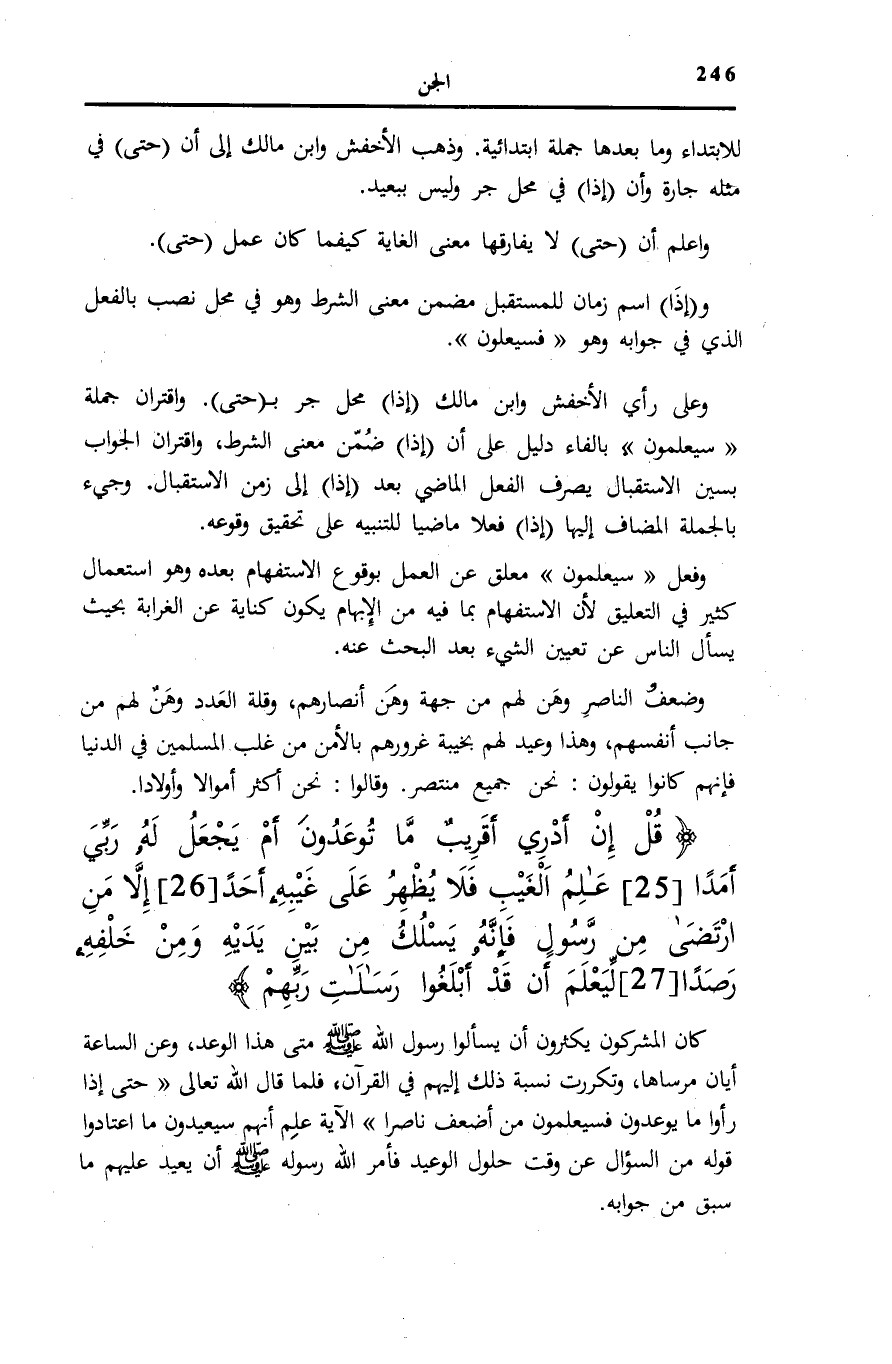 246
الجن
للابتداء وما بعدها جملة ابتدائية. وذهب الأخفش وابن مالك إلى أن (حتى) في
مثله جارة وأن (إذا) في محل جر وليس ببعيد.
واعلم أن (حتى) لا يفارقها معنى الغاية كيفما كان عمل (حتى).
و(إذَا) اسم زمان للمستقبل مضمن معنى الشرط وهو في محل نصب بالفعل
الذي في جوابه وهو « فسيعلون ».
وعلى رأي الأخفش وابن مالك (إذا) محل جر بـ(حتى). واقتران جملة
« سيعلمون » بالفاء دليل على أن (إذا) ضُمّن معنى الشرط، واقتران الجواب
بسين الاستقبال يصرف الفعل الماضي بعد (إذا) إلى زمن الاستقبال. وجيء
بالجملة المضاف إليها (إذا) فعلا ماضيا للتنبيه على تحقيق وقوعه.
وفعل « سيعلمون » معلق عن العمل بوقوع الاستفهام بعده وهو استعمال
كثير في التعليق لأن الاستفهام بما فيه من الإبهام يكون كناية عن الغرابة بحيث
يسأل الناس عن تعيين الشيء بعد البحث عنه.
وضعفُ الناصرِ وهَن لهم من جهة وهَن أنصارهم، وقلة العَدد وهَنٌ لهم من
جانب أنفسهم، وهذا وعيد لهم بخيبة غرورهم بالأمن من غلب المسلمين في الدنيا
فإنهم كانوا يقولون : نحن جميع منتصر. وقالوا : نحن أكثر أموالا وأولادا.
﴿ قُلْ إِنْ أَدْرِي أَقَرِيبٌ مَّا تُوعَدُونَ أَمْ يَجْعَلُ لَهُۥ رَبِّيَ
أَمَدًا [25] عَـٰلِمُ اَلْغَيْبِ فَلَا يُظْهِرُ عَلَى غَيْبِهِۦ أَحَدًا [26] إِلَّا مَنِ
ارْتَضَىٰ مِن رَّسُولٍ فَإِنَّهُۥ يَسْلُكُ مِن بَيْنِ يَدَيْهِ وَمِنْ خَلْفِهِۦ
رَصَدًا [27] لِّيَعْلَمَ أَن قَدْ أَبْلَغُوا رَسَـٰلَـٰتِ رَبِّهِمْ ﴾
كان المشركون يكثرون أن يسألوا رسول الله ﷺ متى هذا الوعد، وعن الساعة
أيان مرساها، وتكررت نسبة ذلك إليهم في القرآن، فلما قال الله تعالى « حتى إذا
رأوا ما يوعدون فسيعلمون من أضعف ناصرا » الآية علِم أنهم سيعيدون ما اعتادوا
قوله من السؤال عن وقت حلول الوعيد فأمر الله رسوله ﷺ أن يعيد عليهم ما
سبق من جوابه.